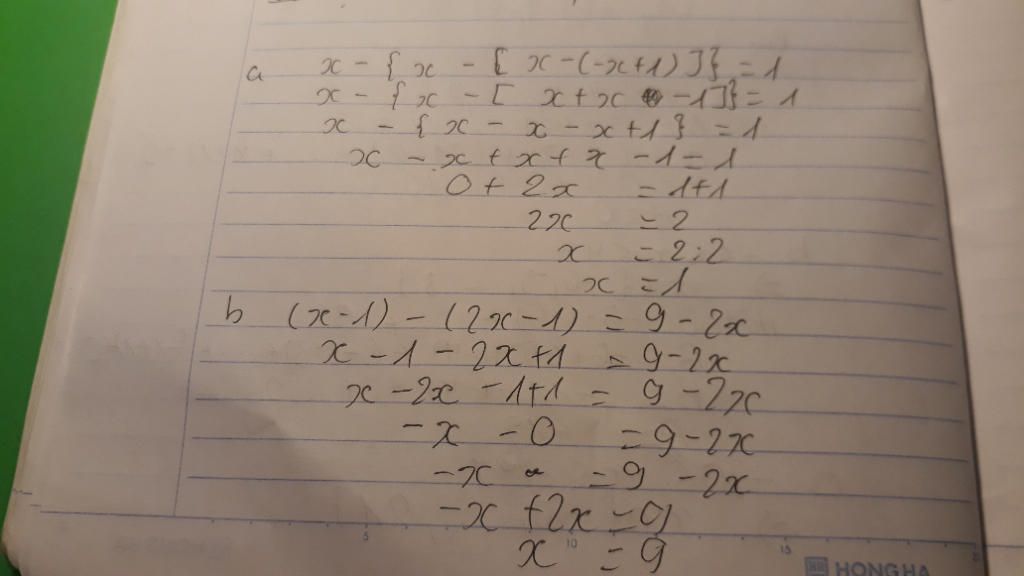 a x - { x - [ x - (-x+1) ]} = 1
x - { x - [ x + x - 1 ]} = 1
x - { x - x - x + 1 } = 1
x - x + x + x - 1 = 1
0 + 2x = 1+1
2x = 2
x = 2:2
x = 1
b (x-1) - (2x-1) = 9 - 2x
x - 1 - 2x + 1 = 9 - 2x
x - 2x - 1+1 = 9 - 2x
-x - 0 = 9 - 2x
-x = 9 - 2x
-x + 2x = 9
x = 9
5 10 15
HONG HA